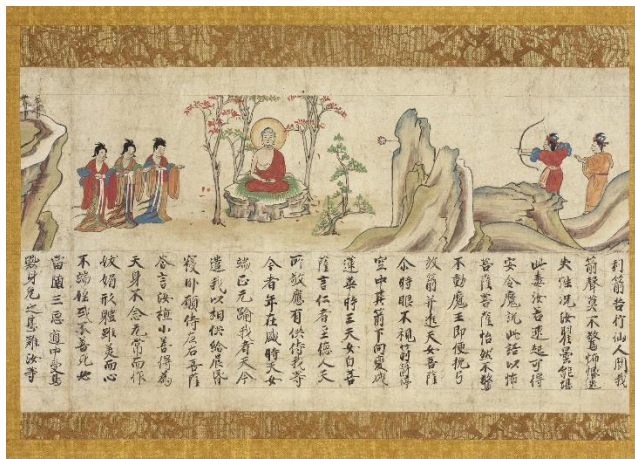 利箭若行仙人聞我
箭聲莫不驚怖惛迷
失性況汝瞿曇能堪
此毒汝若速起可得
安全魔說此語以怖
菩薩菩薩怡然不驚
不動魔王即便挽弓
放箭并進天女菩薩
尒時眼不視箭箭停
空中其箭下向變成
蓮華時三天女白菩
薩言仁者至德人天
所敬應有供侍我等
今者年在盛時天女
端正无踰我者天今
遣我以相供給晨昏
寢卧願侍左右菩薩
答言汝植小善得為
天身不念无常而作
妖媚形體雖美而心
不端婬惑不善死必
當墮三惡道中受鳥
獸身免之甚難汝等